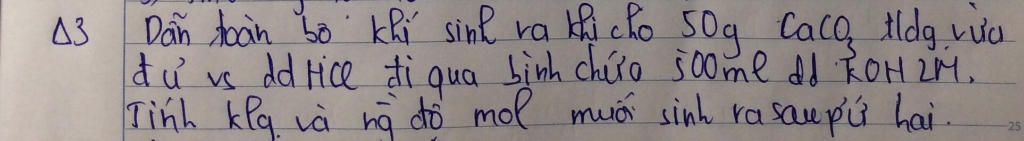 Δ3 Dẫn toàn bộ khí sinh ra khi cho 50g CaCO3 t/dg vừa
đủ vs dd HCl đi qua bình chứa 500ml dd KOH 2M.
Tính klg và ng độ mol muối sinh ra sau pứ hai.
25